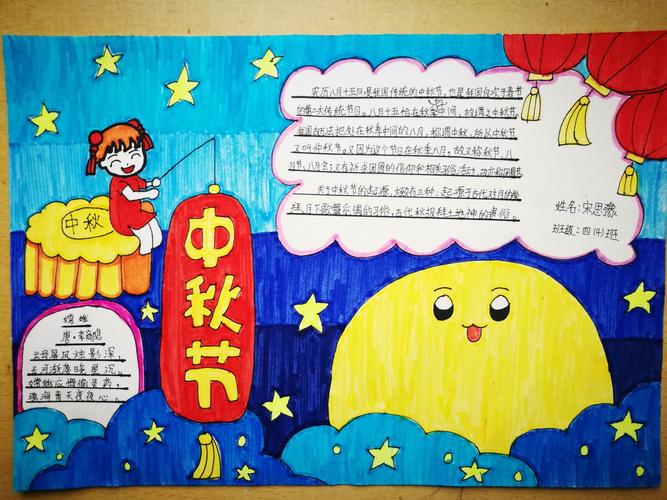 农历八月十五日是我国传统的中秋节,也是我国仅次于春节
的第二大传统节日。八月十五恰在秋季中间,故谓之中秋节。
我国古历法把处在秋季中间的八月,称谓中秋,所以中秋节
又叫仲秋节。又因为这个节日在秋季八月,故又称秋节,八
月节、八月会;又有祈求团圆的信仰和相关习俗活动,
关于中秋节的起源,大致有三种:起源于古代对月的
拜、月下歌舞觅偶的习俗,古代秋报拜土地神的遗俗。
姓名:宋思豫
班级:四(4)班
中秋
中秋节
嫦娥
唐·李商隐
云母屏风烛影深,
长河渐落晓星沉。
嫦娥应悔偷灵药,
碧海青天夜夜心。